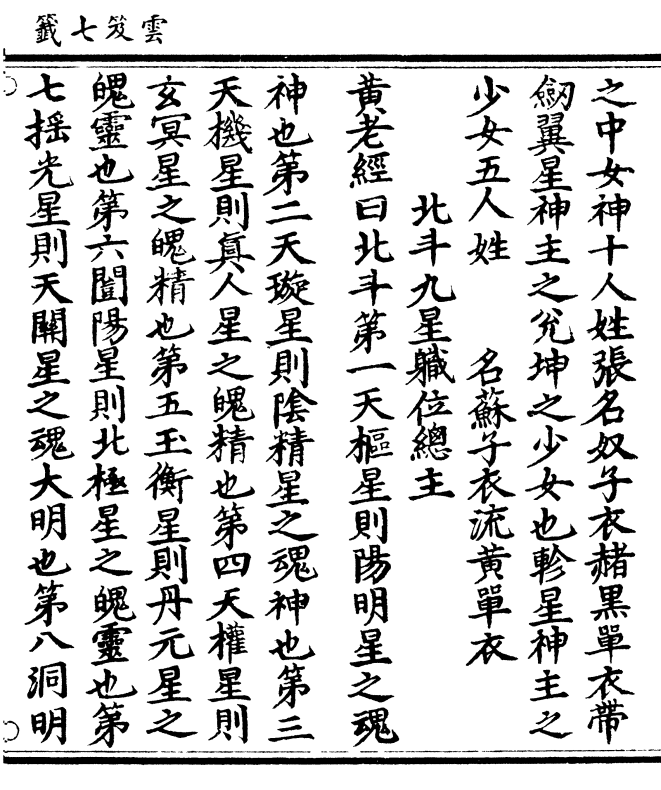 雲笈七籤
之中女神十人姓張名奴子衣赭黑單衣帶
劒翼星神主之兊坤之少女也軫星神主之
少女五人姓　　名蘇子衣流黃單衣
北斗九星職位總主
黃老經曰北斗第一天樞星則陽明星之魂
神也第二天璇星則陰精星之魂神也第三
天機星則眞人星之魄精也第四天權星則
玄冥星之魄精也第五玉衡星則丹元星之
魄靈也第六闓陽星則北極星之魄靈也第
七揺光星則天關星之魂大明也第八洞明